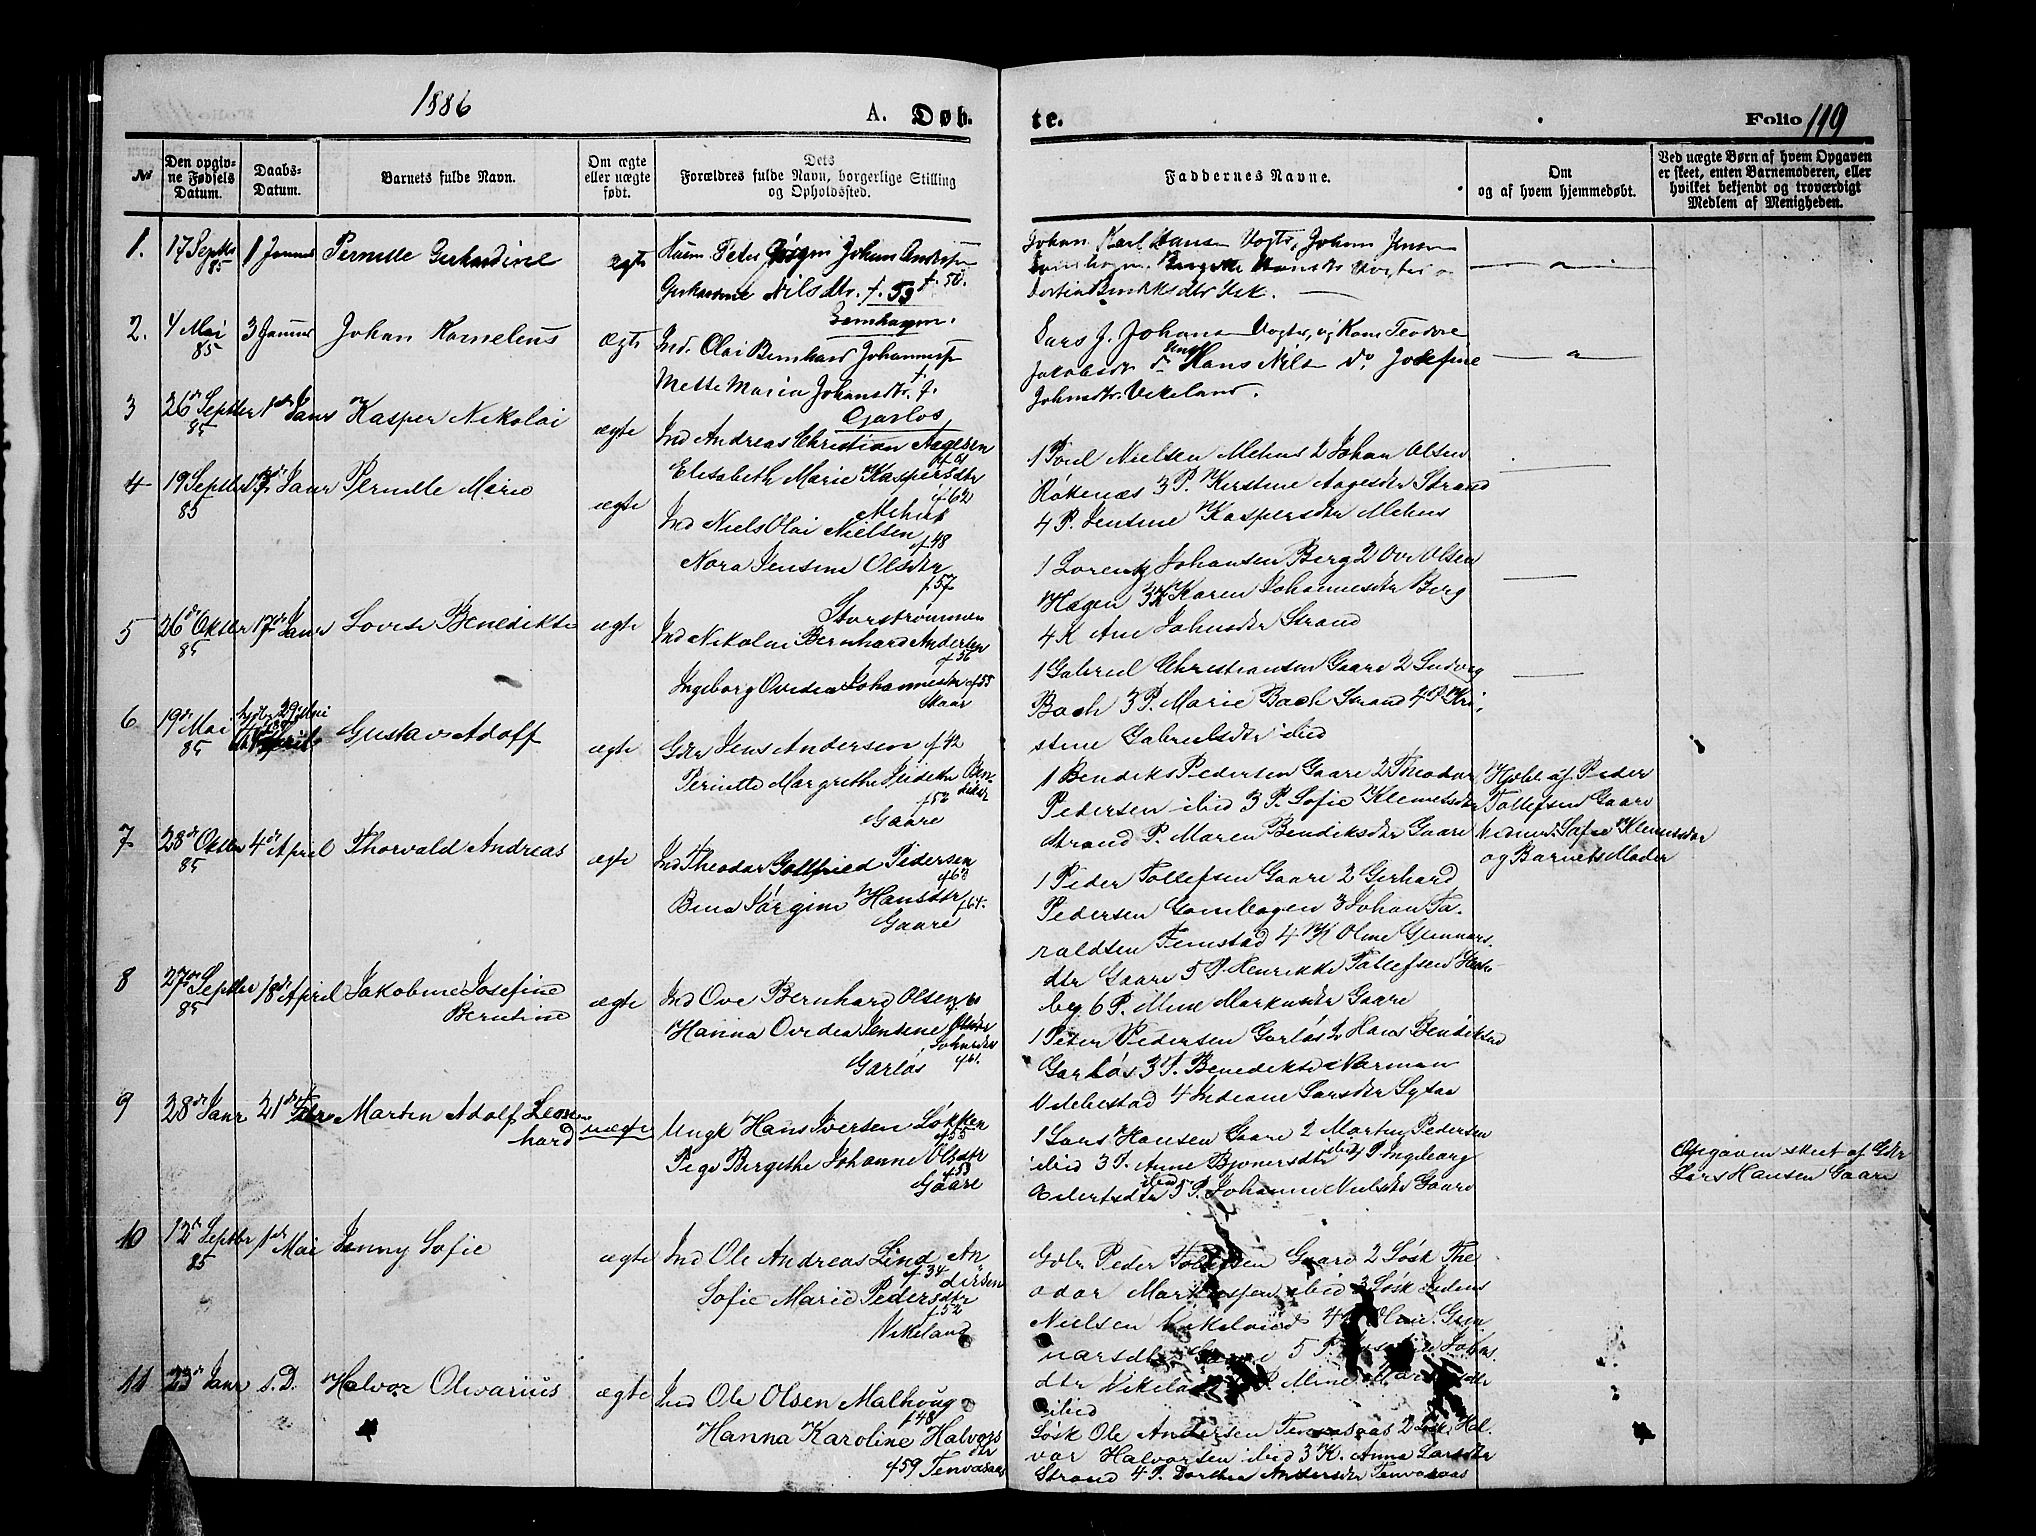 1886
A. Døb-
te.
Folio 119
№
Den opgiv-
ne Fødsels
Datum.
Daabs-
Datum.
Barnets fulde Navn.
Om ægte
eller uægte
født.
Dets
Forældres fulde Navn, borgerlige Stilling
og Opholdssted.
Faddernes Navne.
Om
og af hvem hjemmedøbt.
Ved uægte Børn af hvem Opgaven
er skeet, enten Barnemoderen, eller
hvilket bekjendt og troværdigt
Medlem af Menigheden.
1.
17 Septbr
85
1 Januar
Pernille Gerhardine
ægte
Peter Jørgen Johan Andersen
f. 50.
Gerhardine Nilsdtr. f. 53
Johan Karl Hansen Vogts, Johan Jensen
2.
4 Mai
85
3 Januar
Johan Kornelius
ægte
Ind. Olai Bernhard Johannessen
Mette Maria Johansdtr. f.
Lars J. Johansen
Hans Nilsen do. Josefine
Johnsdtr. Vikeland.
3
26de Septbr
85
1ste Janr
Kasper Nikolai
ægte
Garløs
Ind Andreas Christian Aagesen
f 61
Elisabeth Marie Kaspersdtr
f 62
Mehus
1 Poul Nielsen Mehus 2 Johan Olsen
Røkenæs 3 P. Kirstine Aagesdtr Strand
4 P. Jensine Kaspersdtr Mehus
4
19 Septbr
85
Janr
Pernille Marie
ægte
Ind Niels Olai Nielsen
f 48
Nora Jensine Olsdtr
f. 57
Storstrømmen
1 Lorentz Johansen Berg 2 Ove Olsen
Hagen 3 K Karen Johannesdtr Berg
4 K Ane Johnsdtr Strand
5
26de Oktbr
85
17de Janr
Lovise Benedikte
ægte
Ind Nikolai Bernhard Andersen
f 56
Ingeborg Ovedea Johannesdtr f 55
Skaar
1 Gabriel Christiansen Gaare 2 Ludvig
Bach 3 P. Marie Bach Strand 4 P. Kri-
stine Gabrielsdtr ibid
6
19de Mai
85
hjdbt 29 Mai
Gustav Adolf
ægte
Gbr Jens Andersen f 42
Pernille Margrethe Judithe Ben-
diksdtr
f 52
Gaare
1 Bendiks Pedersen Gaare 2 Theodor
Pedersen ibid 3 P. Sofie Klemetsdtr
Strand P. Maren Bendiksdtr Gaare
Hjdbt. af Peder
Tollefsen Gaare
Vidner: Sofie Klemetsdtr
og Barnets Moder
7
28de Oktbr
85
4de April
Thorvald Andreas
ægte
Ind Theodor Gottfried Pedersen
f 63
Bina Jørgine Hansdtr f 64.
Gaare
1 Peder Tollefsen Gaare 2 Gerhard
Pedersen Gamhagen 3 Johan Ta-
raldsen Finnstad 4 K Oline Gunnars-
dtr Gaare 5 P. Henrikke Tollefsen
6 P. Mine Markusdtr Gaare
8
27de Septbr
85
18de April
Jakobine Josefine
Berntine
ægte
Ind Ove Bernhard Olsen
Hanna Ovedea Jensine
Johnsdtr
f 61.
Garløs
1 Peter Pedersen Garløs 2 Hans Bendiksen
Garløs 3 P. Benedikte Norman
Vebbestad 4 Indiane Larsdtr
9
28de Janr
21de Febr
Martin Adolf Leon-
hard
uægte
Ungk Hans Iversen Løkken
f 55
Pige Bergithe Johanne Olsdtr
f 53
Gaare
1 Lars Hansen Gaare 2 Martin Pedersen
ibid 3 P. Anne Bjonersdtr ibid 4 P. Ingeborg
Eilertsdtr ibid 5 P. Johanne Nielsdtr Gaare
Opgaven skeet af Gbr
Lars Hansen Gaare
10
12te Septbr
85
1ste Mai
Jenny Sofie
ægte
Ind Ole Andreas Lind An-
dersen
f 34
Sofie Marie Pedersdtr
f 52
Vikeland
Gbr Peder Tollefsen Gaare 2 Løsk The-
odor Martinsen ibid 3 Løsk
Nielsen Vikeland 4 K Oline Gun-
narsdtr Gaare 5 P.
dtr Vikeland
ibid
11
23de Janr
s. D.
Halvor Olivarius
ægte
Ind Ole Olsen Malhoug
f. 48
Hanna Karoline Halvors-
dtr
f 59 Tenvasaas
Løsk Ole Andersen Tenvasaas 2 Løsk Hal-
vor Halvorsen ibid 3 K. Anna Larsdtr
Strand 4 P. Dorthea Andersdtr Tenvasaas